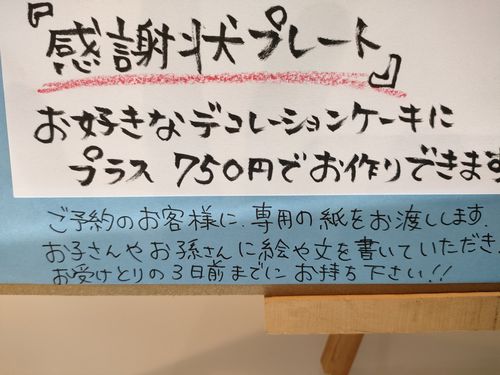 『感謝状プレート』
お好きなデコレーションケーキに
プラス 750円でお作りできます
ご予約のお客様に、専用の紙をお渡しします.
お子さんやお孫さんに絵や文を書いていただき.
お受けとりの3日前までにお持ち下さい!!